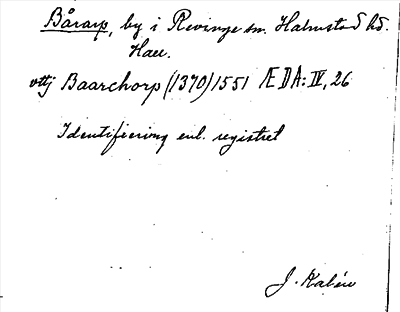 Bårarp, by i Revinge sn. Halmstad hd.
Hall.
vttj Baarehorp (1370) 1551 ÆDA: IV, 26
Identifiering enl. registret
J. Kalén